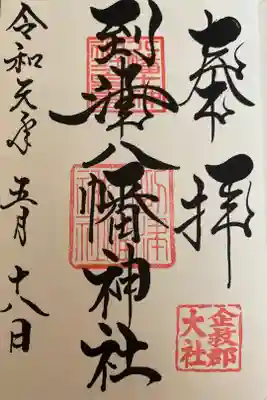 奉拝
企救郡
大社
到津八幡神社
令和元年 五月 十八日